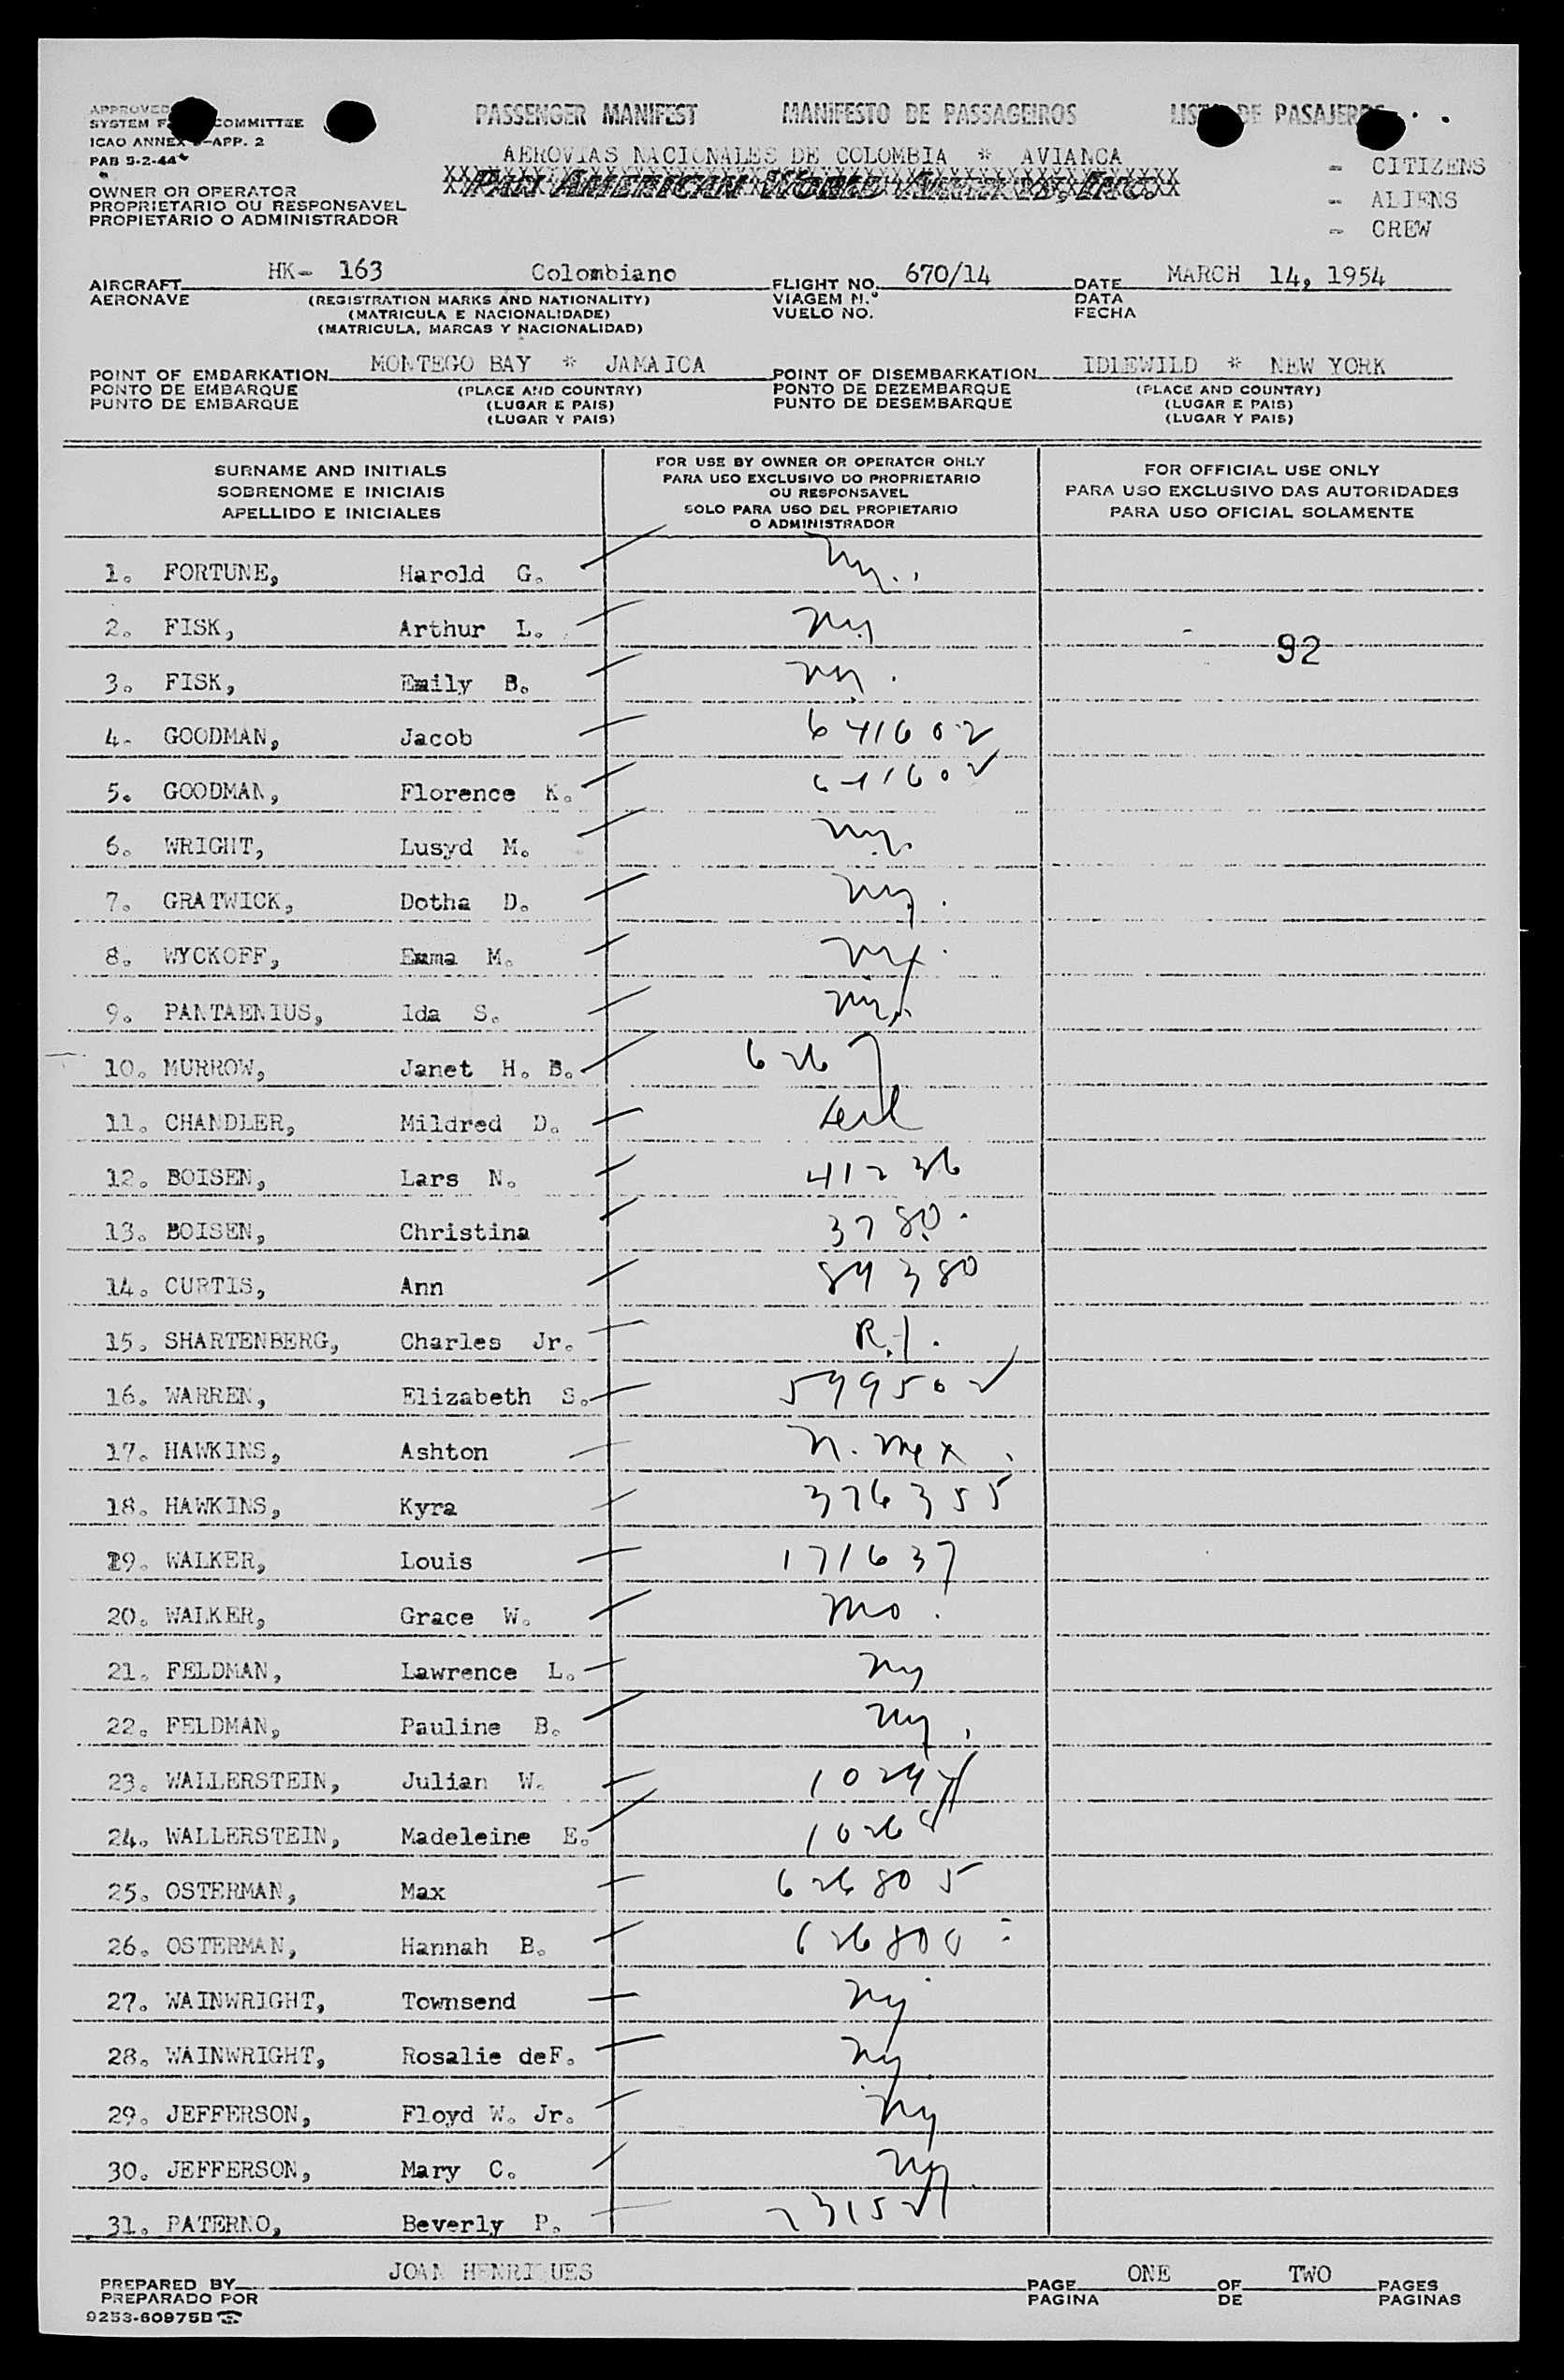 APPROVED
SYSTEM COMMITTEE
ICAO ANNEX 9-APP. 2
PAB 5-2-44
PASSENGER MANIFEST MANIFESTO DE PASSAGEIROS LISTA DE PASAJEROS
AEROVIAS NACIONALES DE COLOMBIA * AVIANCA
PAN AMERICAN WORLD AIRWAYS, INC.
- CITIZENS
- ALIENS
- CREW
OWNER OR OPERATOR
PROPRIETARIO OU RESPONSAVEL
PROPIETARIO O ADMINISTRADOR
AIRCRAFT HK- 163 Colombiano FLIGHT NO. 670/14 DATE MARCH 14, 1954
AERONAVE (REGISTRATION MARKS AND NATIONALITY) VIAGEM N.º DATA
(MATRICULA E NACIONALIDADE) VUELO NO. FECHA
(MATRICULA, MARCAS Y NACIONALIDAD)
POINT OF EMBARKATION MONTEGO BAY * JAMAICA POINT OF DISEMBARKATION IDLEWILD * NEW YORK
PONTO DE EMBARQUE (PLACE AND COUNTRY) PONTO DE DEZEMBARQUE (PLACE AND COUNTRY)
PUNTO DE EMBARQUE (LUGAR E PAIS) PUNTO DE DESEMBARQUE (LUGAR E PAIS)
(LUGAR Y PAIS) (LUGAR Y PAIS)
SURNAME AND INITIALS
SOBRENOME E INICIAIS
APELLIDO E INICIALES
FOR USE BY OWNER OR OPERATOR ONLY
PARA USO EXCLUSIVO DO PROPRIETARIO
OU RESPONSAVEL
SOLO PARA USO DEL PROPIETARIO
O ADMINISTRADOR
FOR OFFICIAL USE ONLY
PARA USO EXCLUSIVO DAS AUTORIDADES
PARA USO OFICIAL SOLAMENTE
1. FORTUNE, Harold G. ny.
2. FISK, Arthur L. ny
92
3. FISK, Emily B. ny.
4. GOODMAN, Jacob 641602
5. GOODMAN, Florence K. 641602
6. WRIGHT, Lusyd M. ny.
7. GRATWICK, Dotha D. ny.
8. WYCKOFF, Emma M. ny.
9. PANTAENIUS, Ida S. ny.
10. MURROW, Janet H. B. 6267
11. CHANDLER, Mildred D.
12. BOISEN, Lars N. 41236
13. BOISEN, Christina 3780.
14. CURTIS, Ann 84380
15. SHARTENBERG, Charles Jr. R.I.
16. WARREN, Elizabeth S. 599502
17. HAWKINS, Ashton n. mex.
18. HAWKINS, Kyra 376355
19. WALKER, Louis 171637
20. WALKER, Grace W. mo.
21. FELDMAN, Lawrence L. ny
22. FELDMAN, Pauline B. ny.
23. WALLERSTEIN, Julian W.
24. WALLERSTEIN, Madeleine E.
25. OSTERMAN, Max 626805
26. OSTERMAN, Hannah B. 626800
27. WAINWRIGHT, Townsend ny
28. WAINWRIGHT, Rosalie deF. ny
29. JEFFERSON, Floyd W. Jr. ny
30. JEFFERSON, Mary C. ny
31. PATERNO, Beverly P.
PREPARED BY JOAN HENRIQUES PAGE ONE OF TWO PAGES
PREPARADO POR PAGINA DE PAGINAS
9253-60975B